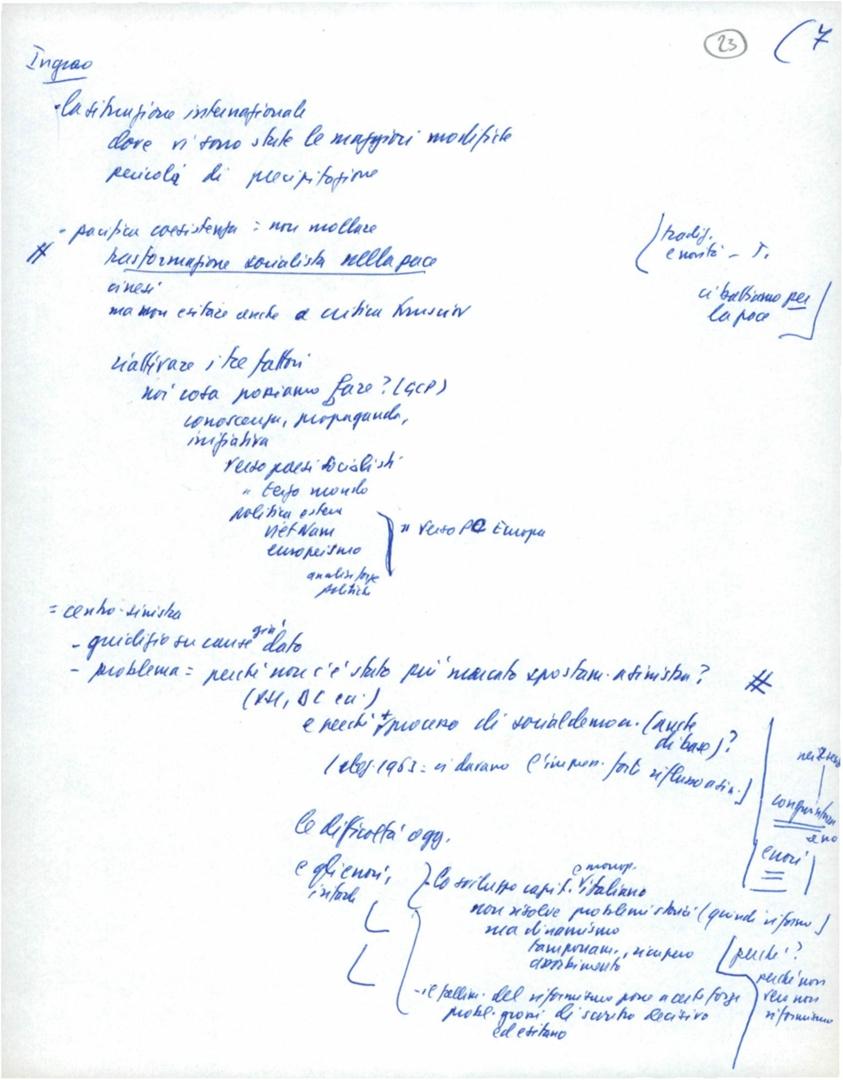 23
(7
Ingrao
- la situazione internazionale
dove vi sono state le maggiori modifiche
pericolo di precipitazione
- pacifica coesistenza = non mollare
# trasformazione socialista nella pace
cinesi
ma non esitare anche a critica Krusciov
(tradiz.
e novità - T.
ci battiamo per
la pace
riattivare i tre fattori
noi cosa possiamo fare? (PCI)
conoscenza, propaganda,
iniziativa
verso paesi socialisti
" terzo mondo
politica estera
Viet Nam
europeismo
analisi forze
politiche
" verso PC Europa
= centro-sinistra
- giudizio su cause già dato
- problema = perché non c'è stato più marcato spostam. a sinistra?
#
(PSI, DC ecc.)
e perché + processo di socialdemocr. (anche
di base)?
1963 = ci davano l'impres. forte riflusso a sin.)
conquistare
errori
le difficoltà ogg.
e gli errori,
- lo sviluppo capit. e monop. italiano
non risolve problemi storici (quindi riforme)
ma dinamismo
tamponam., recupero
assorbimento
perché?
perché non
vero non
riformismo
- il fallim. del riformismo pone a certe forze
probl. grossi di scontro decisivo
ed esitano